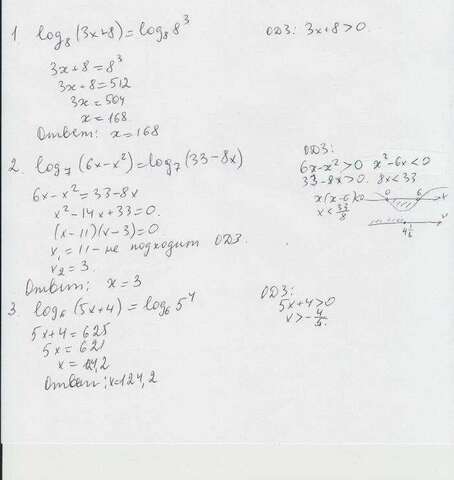 1. log₈(3x+8) = log₈8³ ОДЗ: 3x+8>0.
3x+8=8³
3x+8=512
3x=504
x=168.
Ответ: x=168
2. log₇(6x-x²)=log₇(33-8x) ОДЗ:
6x-x²>0 x²-6x<0
6x-x²=33-8x 33-8x>0. 8x<33
x²-14x+33=0. x(x-6)<0 0 6 x
(x-11)(x-3)=0 x<33/8
x₁=11-не подходит ОДЗ. 4 1/8 x
x₂=3.
Ответ: x=3
3. log₆(5x+4)=log₆5⁴ ОДЗ:
5x+4>0
5x+4=625 x>-4/5.
5x=621
x=124,2
Ответ: x=124,2